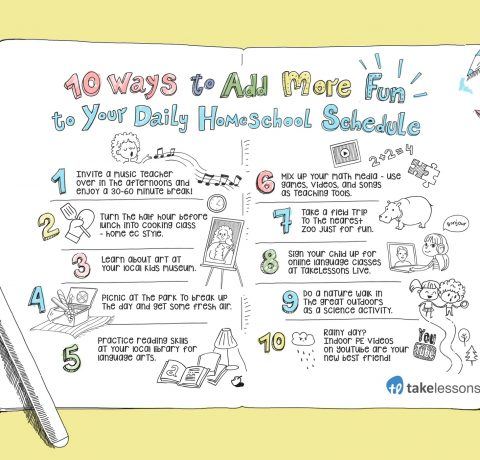 10 Ways to Add More Fun
to Your Daily Homeschool Schedule
1
Invite a music teacher
over in the afternoons and
enjoy a 30-60 minute break!
2
Turn the half hour before
lunch into cooking class
- home ec style.
3
Learn about art at
your local kids museum.
4
Picnic at the park to break up
the day and get some fresh air.
5
Practice reading skills
at your local library for
language arts.
2+2=4
6
Mix up your math media - use
games, videos, and songs
as teaching tools.
7
Take a field trip
to the nearest
zoo just for fun.
8
Sign your child up for
online language classes
at TakeLessons Live.
bonjour
9
Do a nature walk in
the great outdoors
as a science activity.
10
Rainy day?
Indoor PE videos
on YouTube are your
new best friend!
You
Tube
tl takelessons